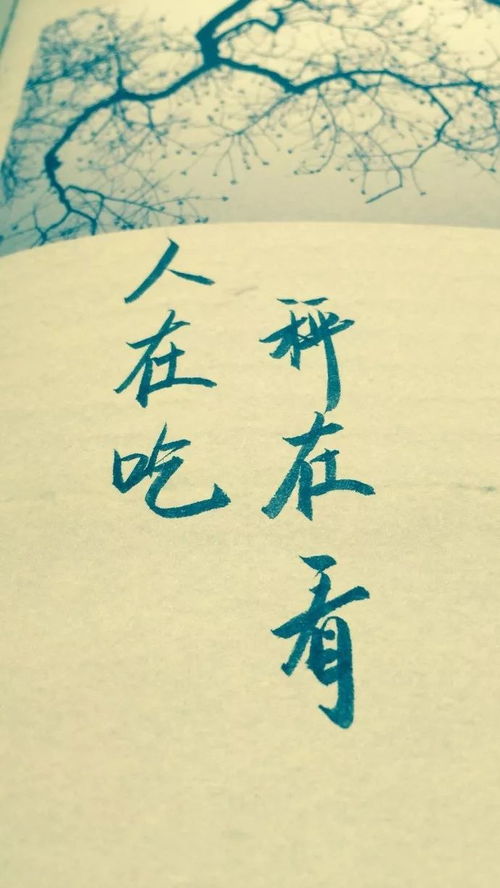 人在吃
秤在看